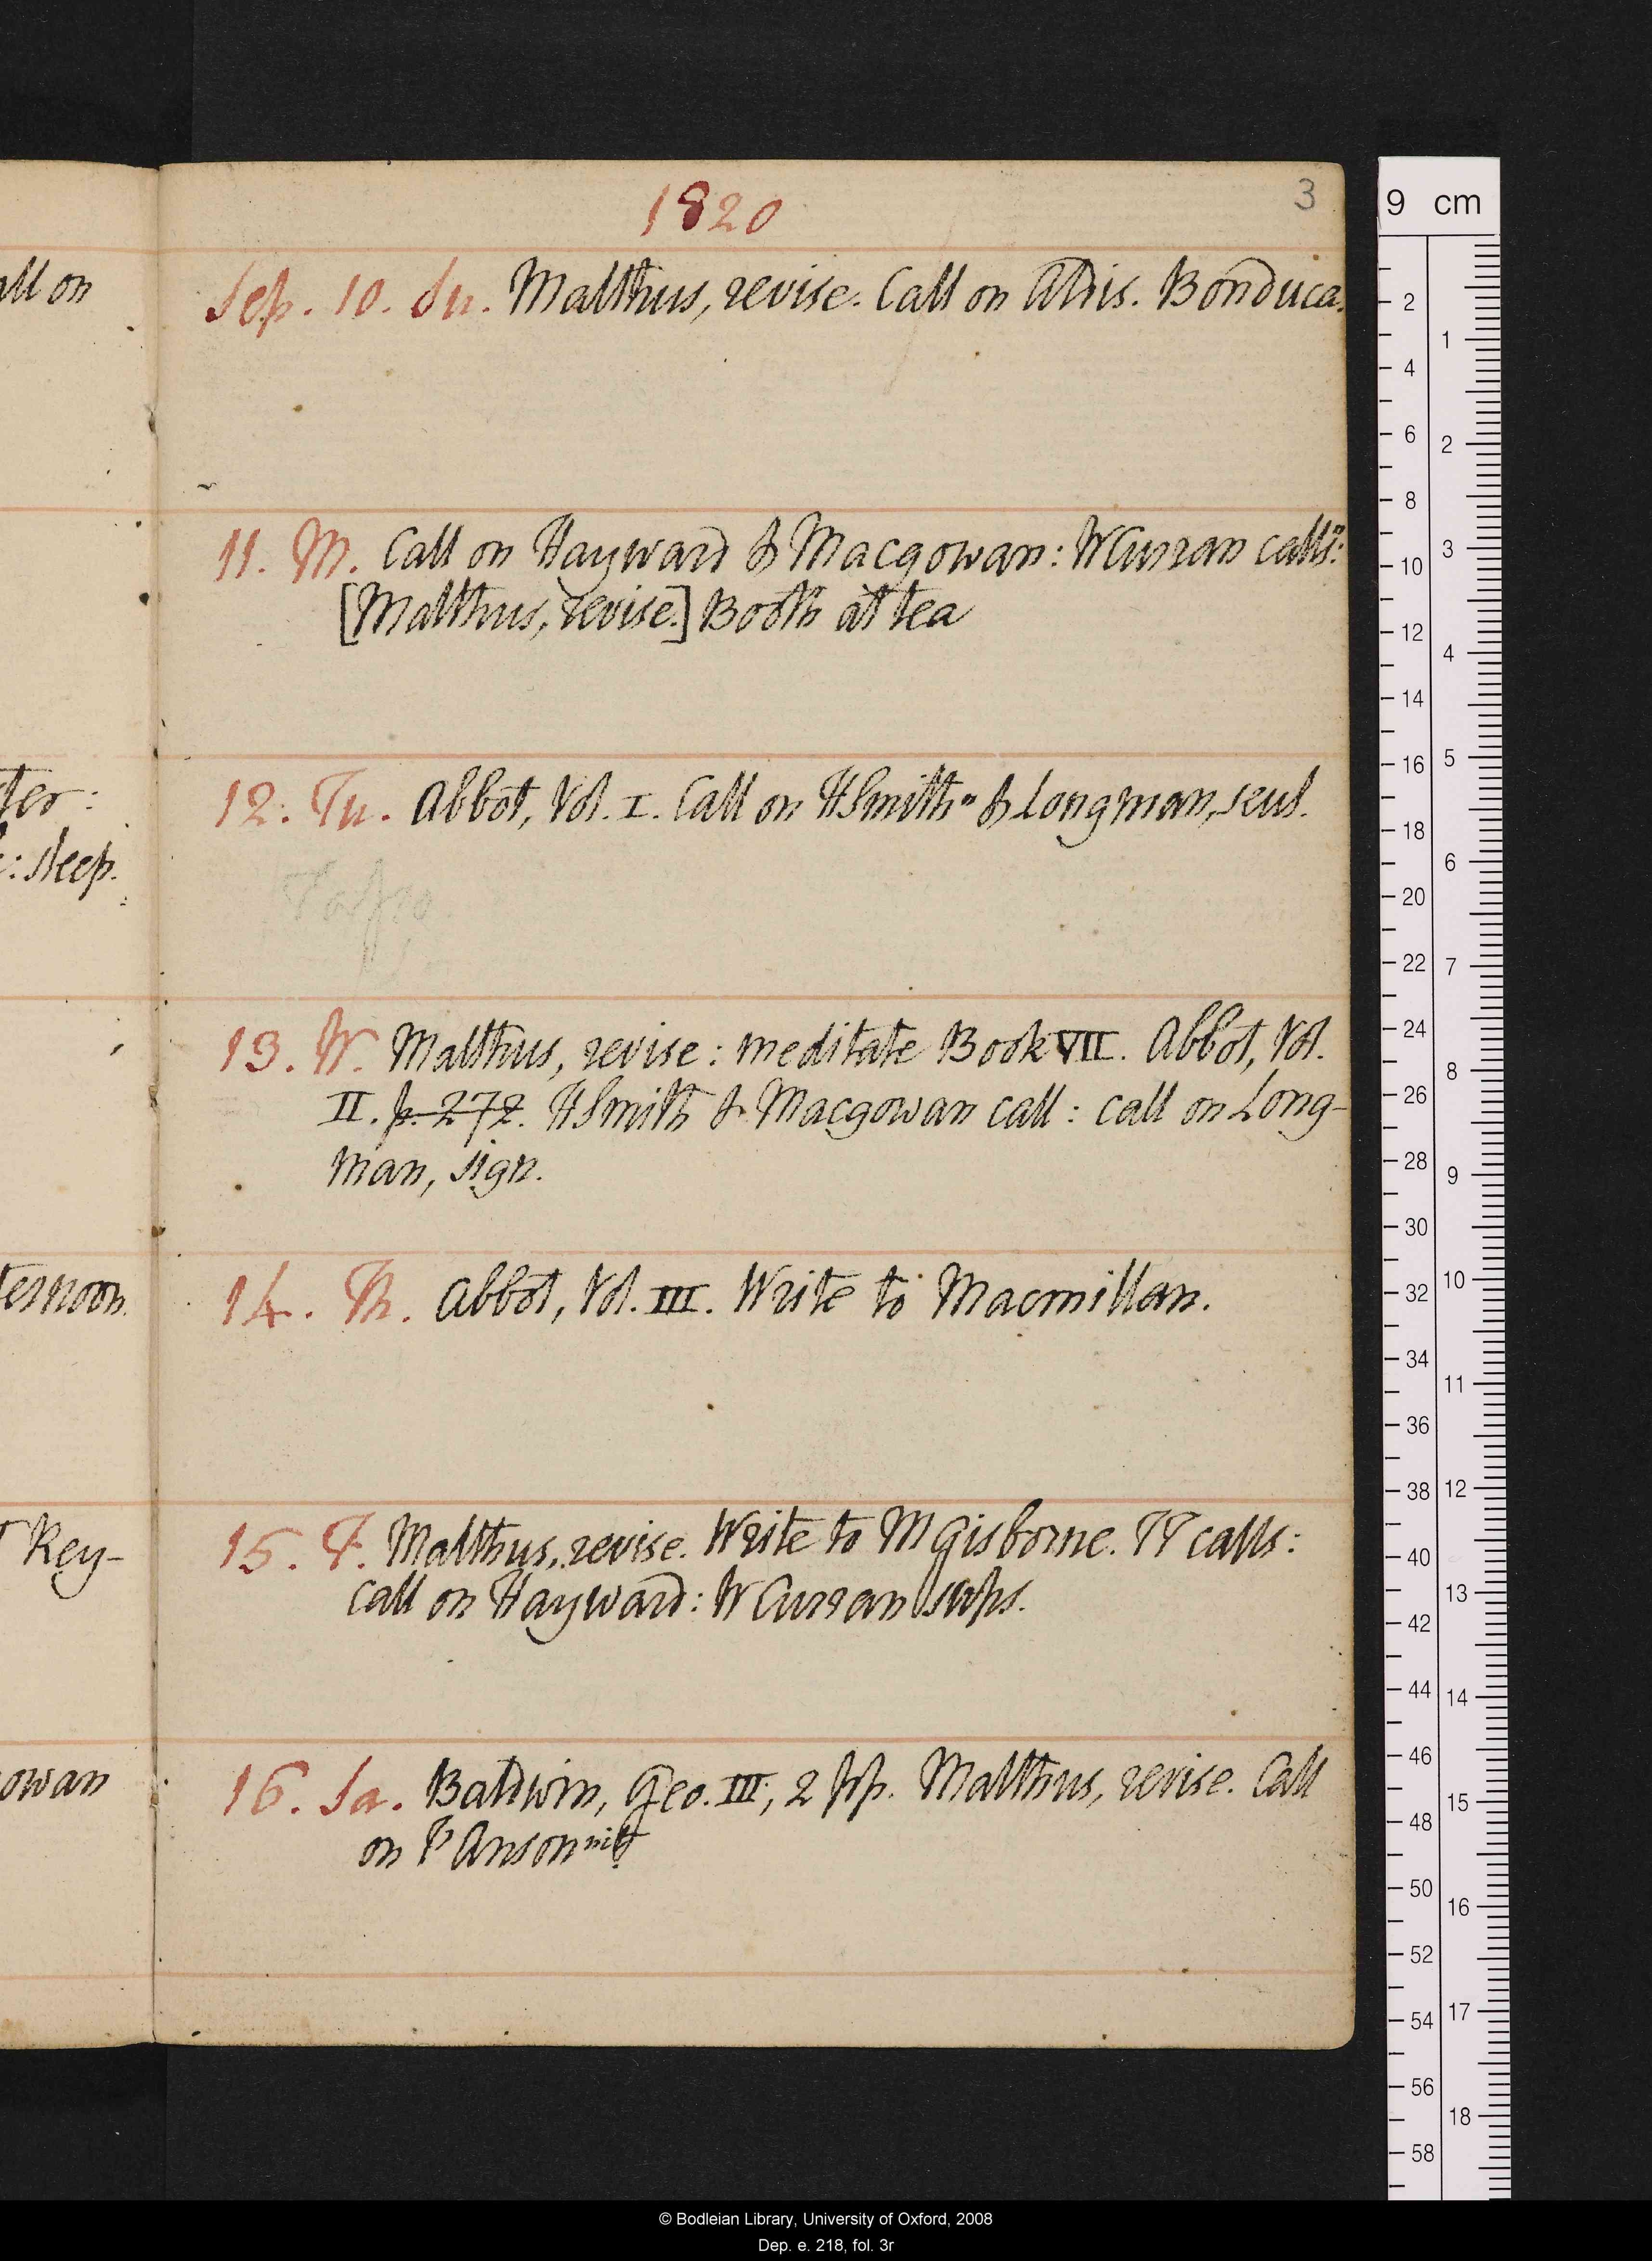 1820
3
Sep. 10. Su. Malthus, revise. Call on Aldis. Bonduca.
11. M. Call on Hayward & Macgowan: W Curran calls n:
[Malthus, revise.] Booth at tea
12. Tu. Abbot, Vol. I. Call on H Smith n & Longman, seul.
13. W. Malthus, revise: meditate Book VII. Abbot, Vol.
II. p. 272. H Smith & Macgowan call: call on Long-
man, sign.
14. Th. Abbot, Vol. III. Write to Macmillan.
15. F. Malthus, revise. Write to M Gisborne. TT calls:
call on Hayward: W Curran sups.
16. Sa. Baldwin, Geo. III, 2 pp. Malthus, revise. Call
on P Anson nit
all on
ter:
: sleep.
ternoon.
Key-
owan
9 cm
2
4
6
8
10
12
14
16
18
20
22
24
26
28
30
32
34
36
38
40
42
44
46
48
50
52
54
56
58
1
2
3
4
5
6
7
8
9
10
11
12
13
14
15
16
17
18
© Bodleian Library, University of Oxford, 2008
Dep. e. 218, fol. 3r